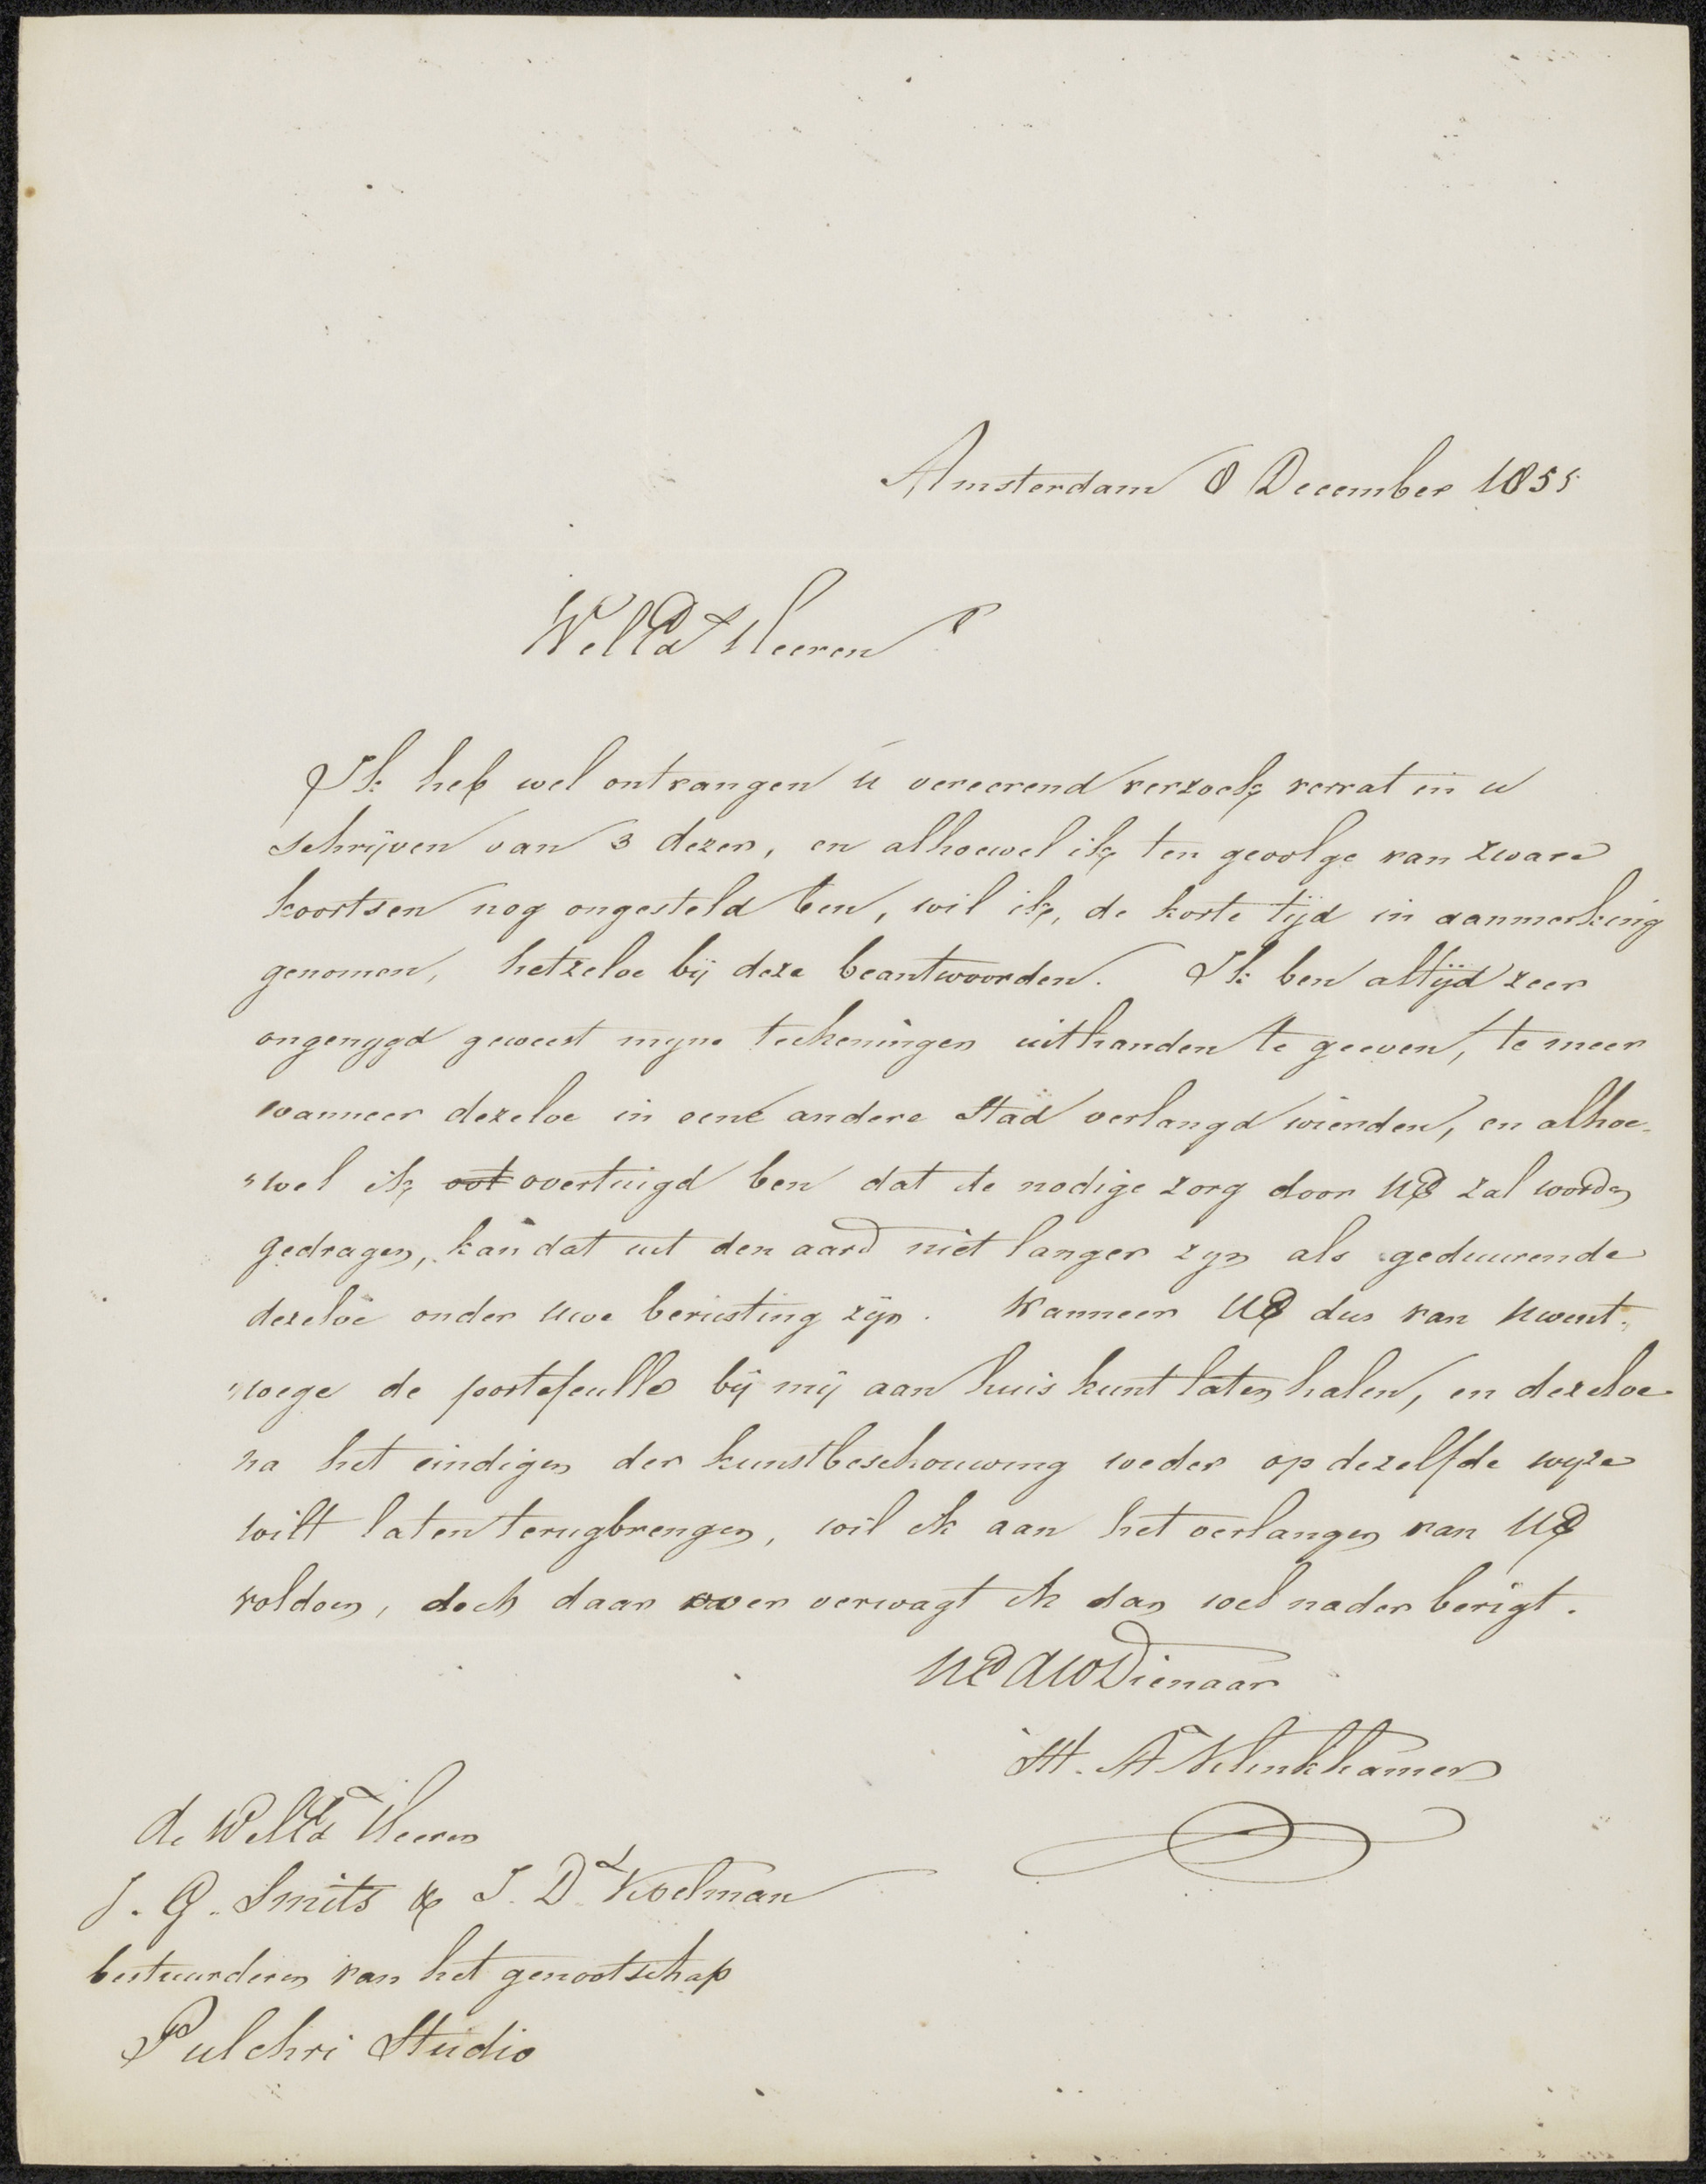 Amsterdam 8 December 1855
WelEd Heeren
Ik heb wel ontvangen u vereerend verzoek vervat in u
schrijven van 3 dezer, en alhoewel ik ten gevolge van zware
koortsen nog ongesteld ben, wil ik, de korte tijd in aanmerking
genomen, hetzelve bij deze beantwoorden. Ik ben altijd zeer
ongenygd geweest myne teekeningen uithanden te geeven, te meer
wanneer dezelve in eene andere Stad verlangd wierden, en alhoe-
"wel ik oot overtuigd ben dat de nodige zorg door UE zal worden
gedragen, kan dat uit den aard niet langer zyn als geduurende
dezelve onder uwe berusting zijn. Wanneer UE dus van uwent-
"wege de portefeulle bij mij aan huis kunt laten halen, en dezelve
na het eindigen der kunstbeschouwing weder op dezelfde wyze
wilt laten terugbrengen, wil ik aan het verlangen van UE
voldoen, doch daar over verwagt ik dan wel nader berigt.
UE DW Dienaar
H. A Klinkhamer
de WelEd Heeren
J. G. Smits & J. D Koelman
bestuurderen van het genootschap
Pulchri Studio